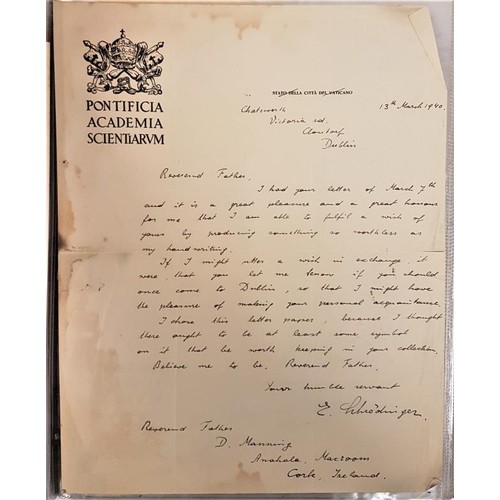 PONTIFICIA
ACADEMIA
SCIENTIARVM
STATO DELLA CITTÀ DEL VATICANO
Chatsworth
13th March 1940.
Victoria rd.
Clontarf
Dublin
Reverend Father,
I had your letter of March 7th
and it is a great pleasure and a great honour
for me that I am able to fulfil a wish of
yours by producing something so worthless as
my handwriting.
If I might utter a wish in exchange, it
were, that you let me know if you should
once come to Dublin, so that I might have
the pleasure of making your personal acquaintance.
I chose this letter paper, because I thought
there ought to be at least some symbol
on it that be worth keeping in your collection.
Believe me to be, Reverend Father,
Your humble servant
E. Schrödinger.
Reverend Father
D. Manning
Anahala, Macroom
Cork, Ireland.